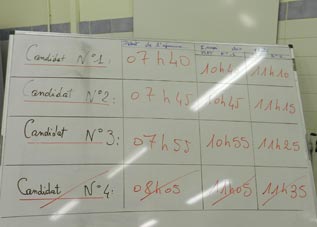 Début de l'épreuve
Candidat N°1: 07h40 10h4 11h10
Candidat N°2: 07h45 10h45 11h15
Candidat N°3: 07h55 10h55 11h25
Candidat N°4: 08h05 11h05 11h35